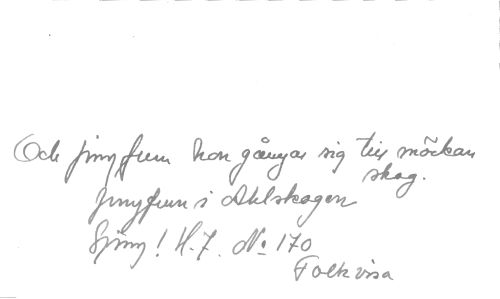 Och jungfrun hon gångar sig till mörkan
skog.
Jungfrun i Ahlskogen
Sjung! H.7. No 170
Folkvisa